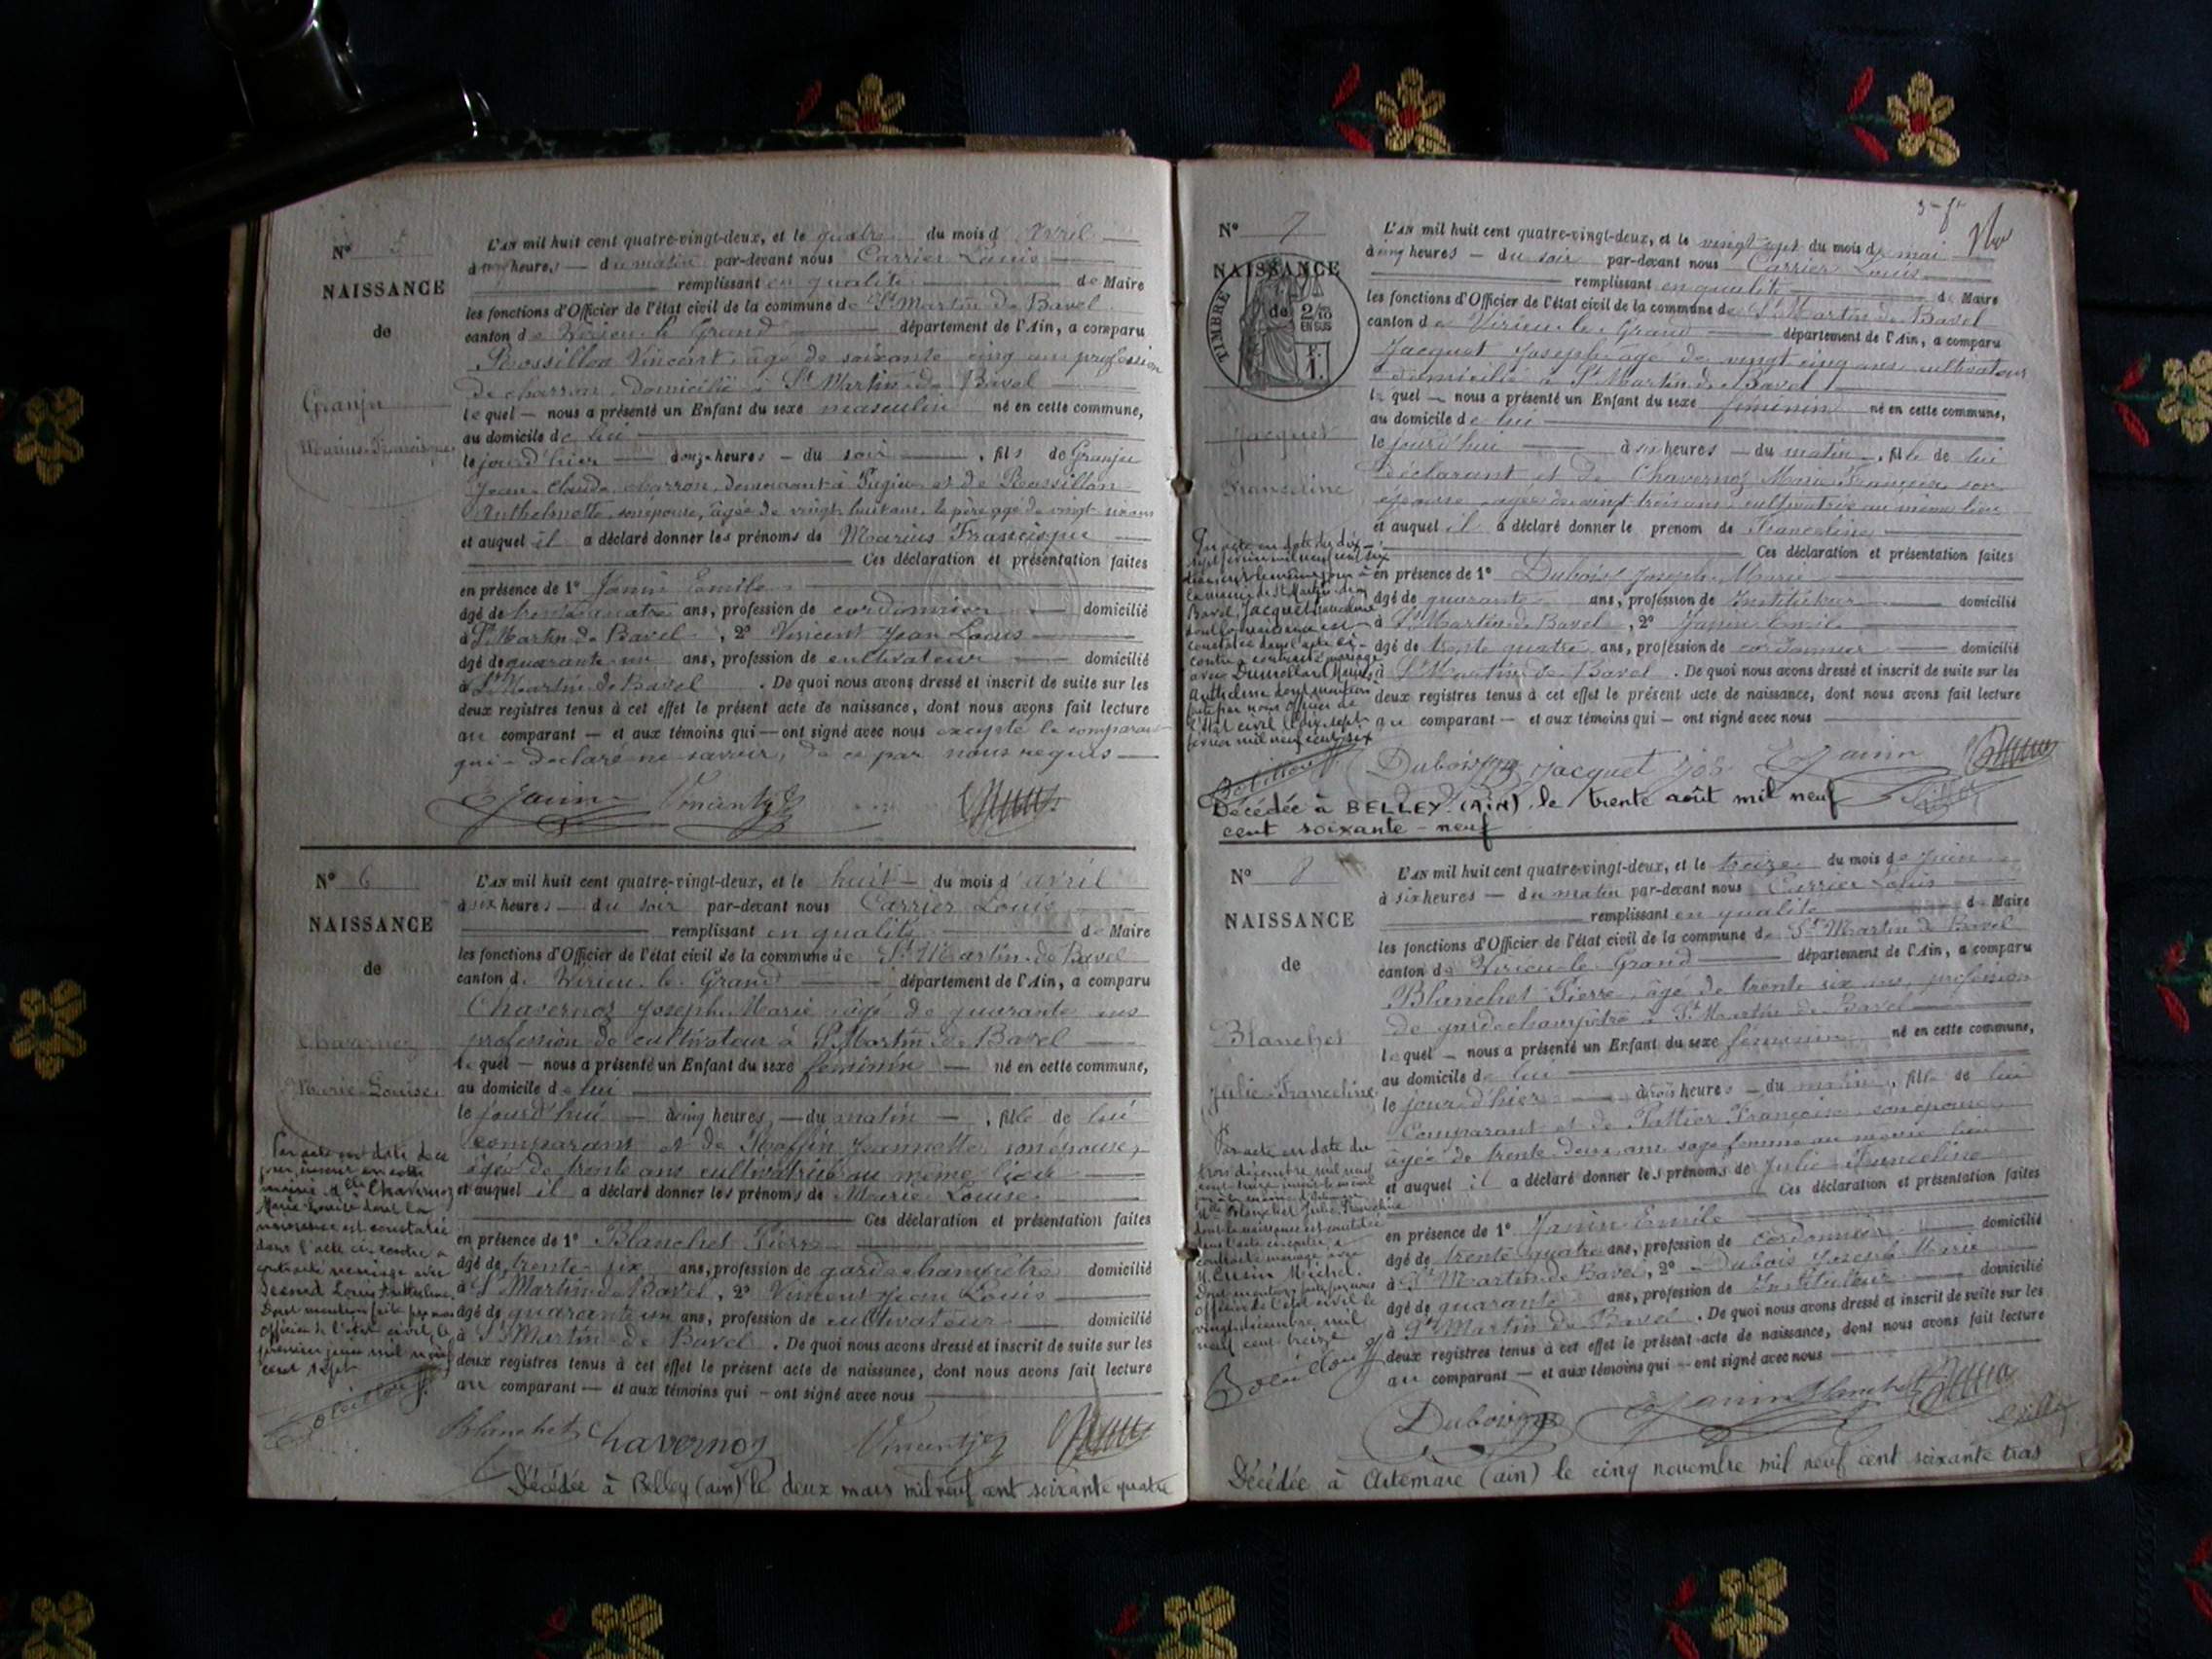 N° 5
NAISSANCE
de
Granju
Marius Francisque
L'AN mil huit cent quatre-vingt-deux, et le quatre du mois d'Avril
à cinq heures — du matin par-devant nous Carrier Louis
remplissant en qualité de Maire
les fonctions d'Officier de l'état civil de la commune de St Martin de Bavel
canton de Virieu le Grand département de l'Ain, a comparu
Rossillon Vincent âgé de soixante cinq ans profession
de charron, domicilié à St Martin de Bavel
lequel — nous a présenté un Enfant du sexe masculin né en cette commune,
au domicile de lui
le jour d'hier à onze heures — du soir, fils de Granju
Jean Claude charron, demeurant à Pugieu et de Rossillon
Anthelmette son épouse, âgée de vingt huit ans, le père âgé de vingt ans
et auquel il a déclaré donner les prénoms de Marius Francisque
Ces déclaration et présentation faites
en présence de 1° Janin Emile
âgé de trente quatre ans, profession de cordonnier domicilié
à St Martin de Bavel, 2° Vincent Jean Louis
âgé de quarante un ans, profession de cultivateur domicilié
à St Martin de Bavel. De quoi nous avons dressé et inscrit de suite sur les
deux registres tenus à cet effet le présent acte de naissance, dont nous avons fait lecture
au comparant — et aux témoins qui — ont signé avec nous excepté le comparant
qui a déclaré ne savoir, de ce par nous requis
E Janin Vincent
N° 6
NAISSANCE
de
Chavernoz
Marie-Louise
L'AN mil huit cent quatre-vingt-deux, et le huit — du mois d'avril
à six heures — du soir par-devant nous Carrier Louis
remplissant en qualité de Maire
les fonctions d'Officier de l'état civil de la commune de St Martin de Bavel
canton de Virieu le Grand département de l'Ain, a comparu
Chavernoz Joseph Marie âgé de quarante ans
profession de cultivateur à St Martin de Bavel
lequel — nous a présenté un Enfant du sexe féminin — né en cette commune,
au domicile de lui
le jourd'hui — à cinq heures, — du matin —, fille de lui
comparant et de Jeannette son épouse,
âgée de trente ans cultivatrice au même lieu
et auquel il a déclaré donner les prénoms de Marie Louise
Ces déclaration et présentation faites
en présence de 1° Blanchet Pierre
âgé de trente six ans, profession de garde champêtre domicilié
à St Martin de Bavel, 2° Vincent Jean Louis
âgé de quarante un ans, profession de cultivateur domicilié
à St Martin de Bavel. De quoi nous avons dressé et inscrit de suite sur les
deux registres tenus à cet effet le présent acte de naissance, dont nous avons fait lecture
au comparant — et aux témoins qui — ont signé avec nous
Par acte en date de ce
jour, inscrit en cette
mairie Mlle Chavernoz
Marie Louise dont la
naissance est constatée
dans l'acte ci-contre a
contracté mariage avec
Louis Anthelme,
Dont mention faite par nous
Officier de l'état civil, le
premier juin mil neuf
cent sept
Blanchet Chavernoz Vincent
Décédée à Belley (ain) le deux mars mil neuf cent soixante quatre
N° 7
NAISSANCE
de
TIMBRE
2/10
EN SUS
Jacquet
Franceline
L'AN mil huit cent quatre-vingt-deux, et le vingt sept du mois de mai
à cinq heures — du soir par-devant nous Carrier Louis
remplissant en qualité de Maire
les fonctions d'Officier de l'état civil de la commune de St Martin de Bavel
canton de Virieu-le-Grand département de l'Ain, a comparu
Jacquet Joseph âgé de vingt cinq ans cultivateur
domicilié à St Martin de Bavel
lequel — nous a présenté un Enfant du sexe féminin né en cette commune,
au domicile de lui
le jourd'hui à six heures — du matin, fille de lui
déclarant et de Chavernoz Marie Françoise son
épouse, âgée de vingt trois ans, cultivatrice au même lieu
et auquel il a déclaré donner le prénom de Franceline
Ces déclaration et présentation faites
en présence de 1° Dubois Joseph Marie
âgé de quarante ans, profession de Instituteur domicilié
à St Martin de Bavel, 2° Janin Emile
âgé de trente quatre ans, profession de cordonnier domicilié
à St Martin de Bavel. De quoi nous avons dressé et inscrit de suite sur les
deux registres tenus à cet effet le présent acte de naissance, dont nous avons fait lecture
au comparant — et aux témoins qui — ont signé avec nous
Par acte en date du dix-
sept février mil neuf cent six
Bavel Jacquet Franceline
dont la naissance est
constatée dans l'acte ci-
contre a contracté mariage
avec Dumollard
Anthelme dont mention
faite par nous Officier de
l'état civil le dix sept
février mil neuf cent six
Dubois Jacquet Jos E Janin
Décédée à BELLEY (AIN) le trente août mil neuf
cent soixante-neuf
N° 8
NAISSANCE
de
Blanchet
Julie-Franceline
L'AN mil huit cent quatre-vingt-deux, et le treize du mois de Juin
à six heures — du matin par-devant nous Carrier Louis
remplissant en qualité de Maire
les fonctions d'Officier de l'état civil de la commune de St Martin de Bavel
canton de Virieu-le-Grand département de l'Ain, a comparu
Blanchet Pierre, âgé de trente six ans, profession
de garde champêtre à St Martin de Bavel
lequel — nous a présenté un Enfant du sexe féminin né en cette commune,
au domicile de lui
le jour d'hier à trois heures — du matin, fille de lui
Comparant et de Françoise son épouse
âgée de trente deux ans sage femme au même lieu
et auquel il a déclaré donner les prénoms de Julie Franceline
Ces déclaration et présentation faites
en présence de 1° Janin Emile
âgé de trente quatre ans, profession de cordonnier domicilié
à St Martin de Bavel, 2° Dubois Joseph Marie
âgé de quarante ans, profession de Instituteur domicilié
à St Martin de Bavel. De quoi nous avons dressé et inscrit de suite sur les
deux registres tenus à cet effet le présent acte de naissance, dont nous avons fait lecture
au comparant — et aux témoins qui — ont signé avec nous
Par acte en date du
trois décembre mil neuf
cent treize
Mlle Blanchet Julie Franceline
dont la naissance est constatée
dans l'acte ci-contre a
contracté mariage avec
Michel.
Dont mention faite par nous
Officier de l'état civil le
vingt décembre mil
neuf cent treize
Dubois E Janin Blanchet
Décédée à Artemare (ain) le cinq novembre mil neuf cent soixante trois